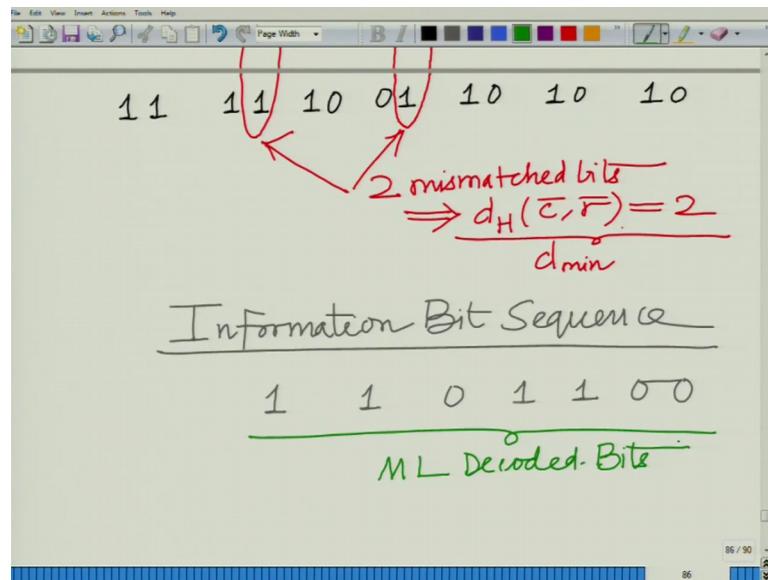 File Edit View Insert Actions Tools Help
Page Width B I
11 11 10 01 10 10 10
2 mismatched bits
⇒ d_H(c̄, r̄) = 2
d_min
Information Bit Sequence
1 1 0 1 1 0 0
ML Decoded Bits
86 / 90
86